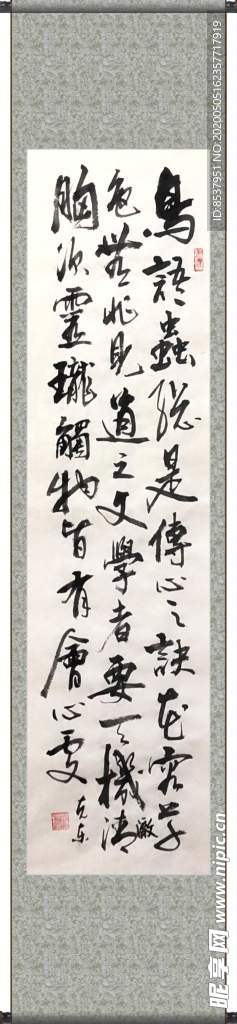 鳥語蟲聲總是傳心之訣花容草
色無非見道之文學者要天機清澈
胸次靈瓏觸物皆有會心處
克东
ID:8537951 NO:20200505162357717919
昵享网 www.nipic.cn